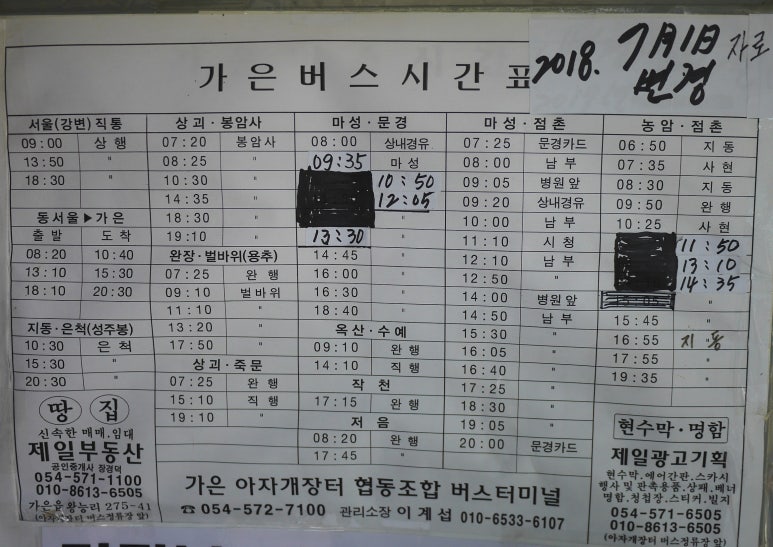 가은버스시간표
2018. 7月1日 자로
변경
서울(강변)직통
09:00 상 행
13:50 "
18:30 "
동서울▶가은
출 발 도 착
08:20 10:40
13:10 15:30
18:10 20:30
지동·은척(성주봉)
10:30 은 척
15:30 "
20:30 "
상괴·봉암사
07:20 봉암사
08:25 "
10:30 "
14:35 "
18:30 "
19:10 "
완장·벌바위(용추)
07:25 완 행
09:10 벌바위
11:10 "
13:20 "
17:50 "
상괴·죽문
07:25 완 행
15:10 직 행
19:10 "
마성·문경
08:00 상내경유
09:35 마 성
10:50
12:05
13:30 "
14:45 "
16:00 "
16:30 "
18:40 "
옥산·수예
09:10 완 행
14:10 직 행
작 천
17:15 완 행
저 음
08:20 완 행
17:45 "
마성·점촌
07:25 문경카드
08:00 남 부
09:05 병원앞
09:20 상내경유
10:00 남 부
11:10 시 청
12:10 남 부
12:50 "
14:00 병원앞
14:50 남 부
15:30 "
16:05 "
16:40 "
17:25 "
18:30 "
19:05 "
20:00 문경카드
농암·점촌
06:50 지 동
07:35 사 현
08:30 지 동
09:50 완 행
10:25 사 현
11:50
13:10
14:35
"
15:45 "
16:55 지동
17:55 "
19:35 "
땅 집
신속한 매매.임대
제일부동산
공인중개사 장경덕
054-571-1100
010-8613-6505
가은읍왕능리 275-41
(아자개장터 버스정류장 앞)
가은 아자개장터 협동조합 버스터미널
☎ 054-572-7100 관리소장 이 계 섭 010-6533-6107
현수막·명함
제일광고기획
현수막.에어간판.스카시
행사 및 판촉용품.상패.베너
명함.청첩장.스티커.빌지
054-571-6505
010-8613-6505
(아자개장터 버스정류장 앞)